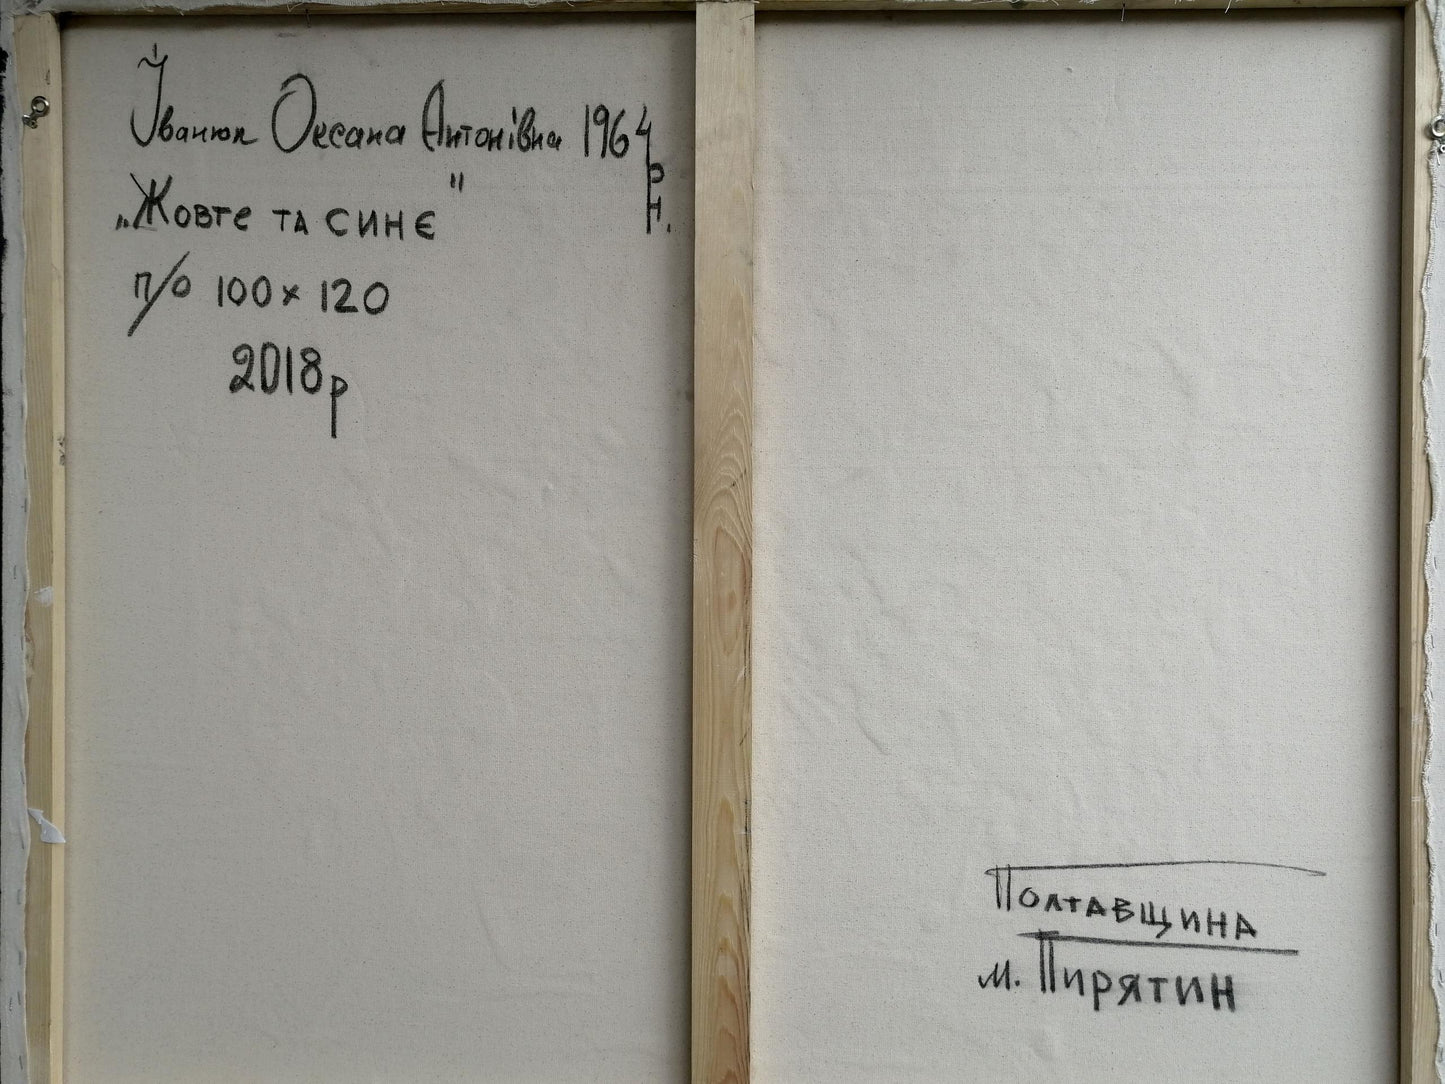 Іванюк Оксана Антонівна 1964 р н.
„Жовте та синє"
п/о 100 х 120
2018р
Полтавщина
м. Пирятин